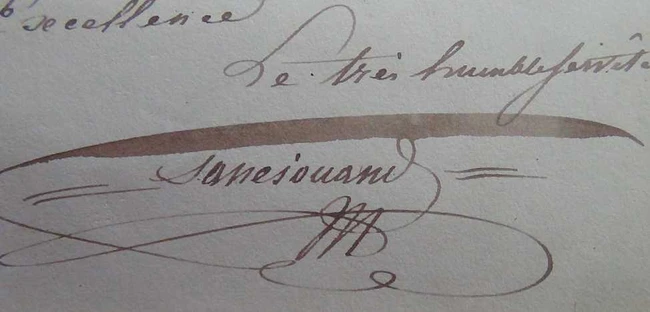 Excellence
Le très humble Servit
Sanejouand
M